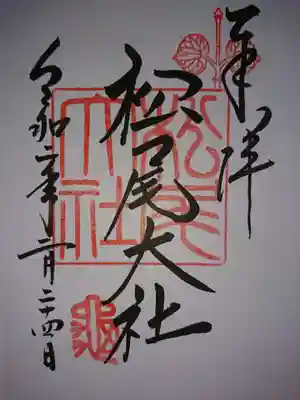 奉拝
松尾大社
令和二年二月二十四日
松尾大社